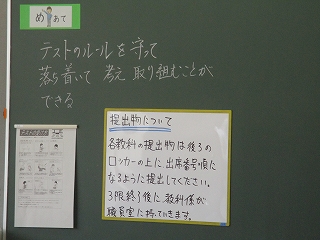 めあて
テストのルールを守って
落ち着いて 考え 取り組むことが
できる
提出物について
各教科の提出物は後ろの
ロッカーの上に出席番号順に
なるように提出してください。
3限終了後に、教科係が
職員室に持っていきます。